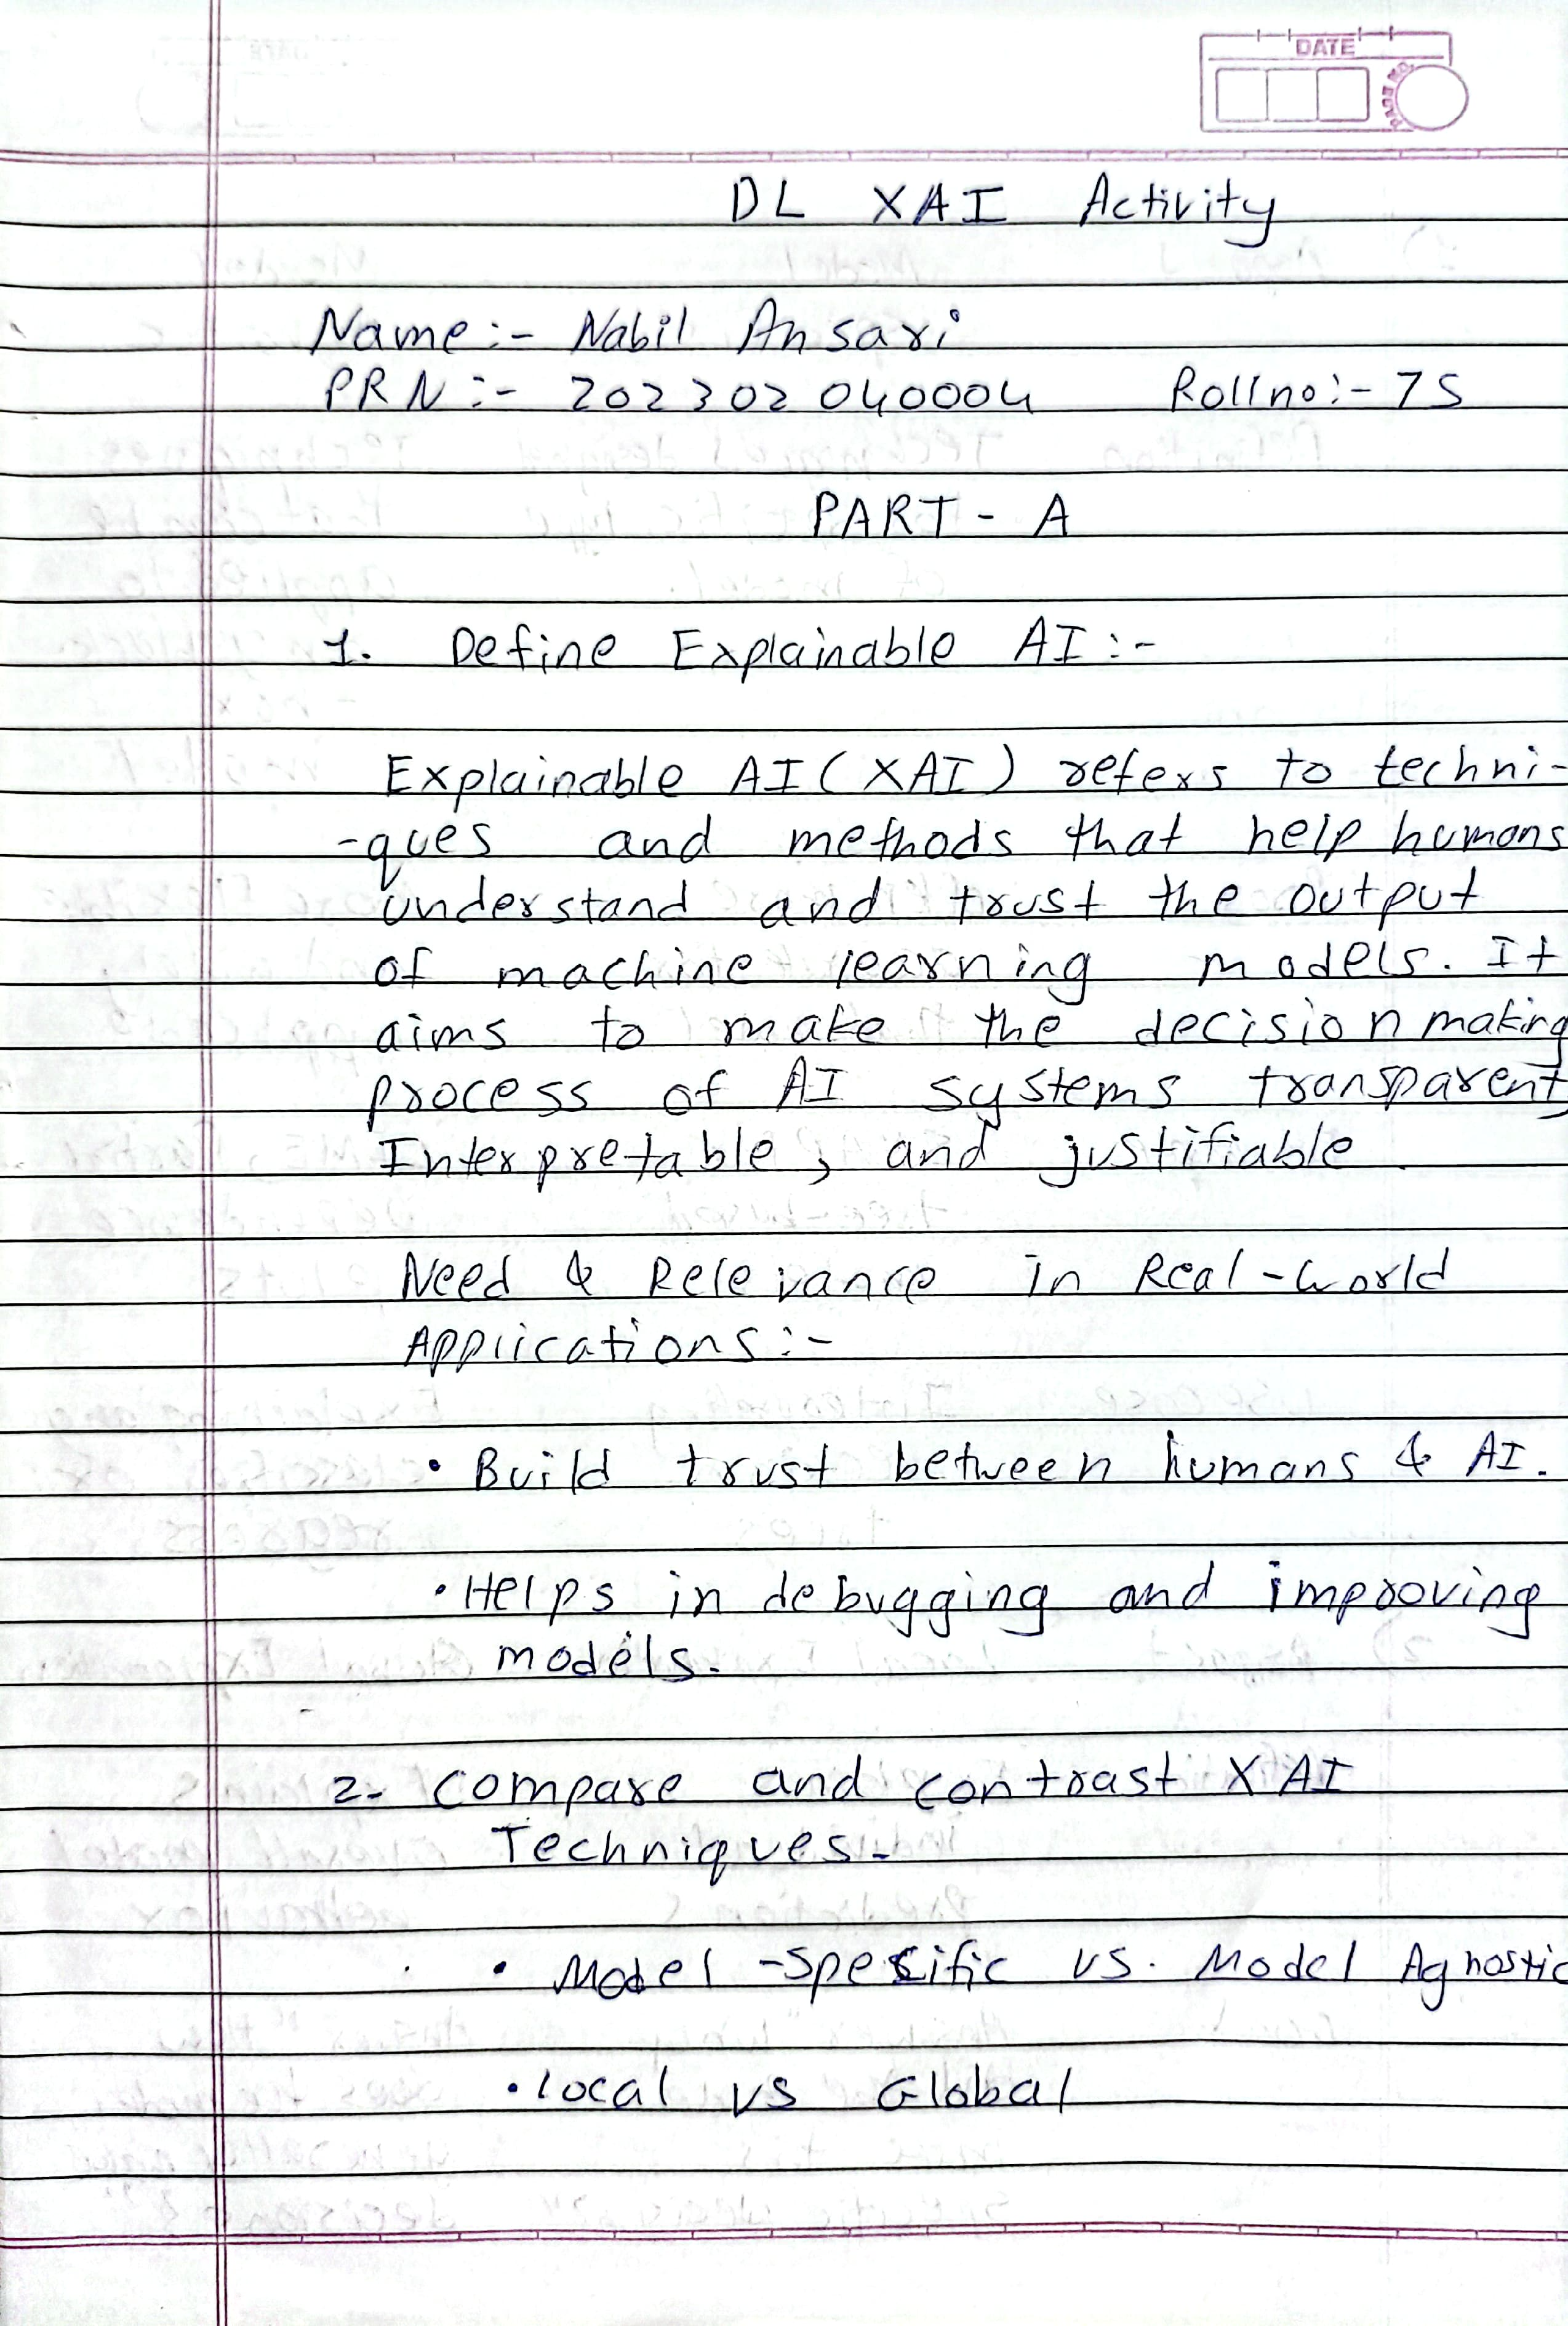 DATE
PAGE NO.
DL XAI Activity
Name :- Nabil Ansari
PRN :- 202302040004 Rollno :- 75
PART - A
1. Define Explainable AI :-
Explainable AI (XAI) refers to techni-
-ques and methods that help humans
understand and trust the output
of machine learning models. It
aims to make the decision making
process of AI systems transparent,
Interpretable, and justifiable.
Need & Relevance in Real-World
Applications :-
• Build trust between humans & AI.
• Helps in debugging and improving
models.
2. Compare and contrast XAI
Techniques.
• Model-Specific vs. Model Agnostic
• Local vs Global